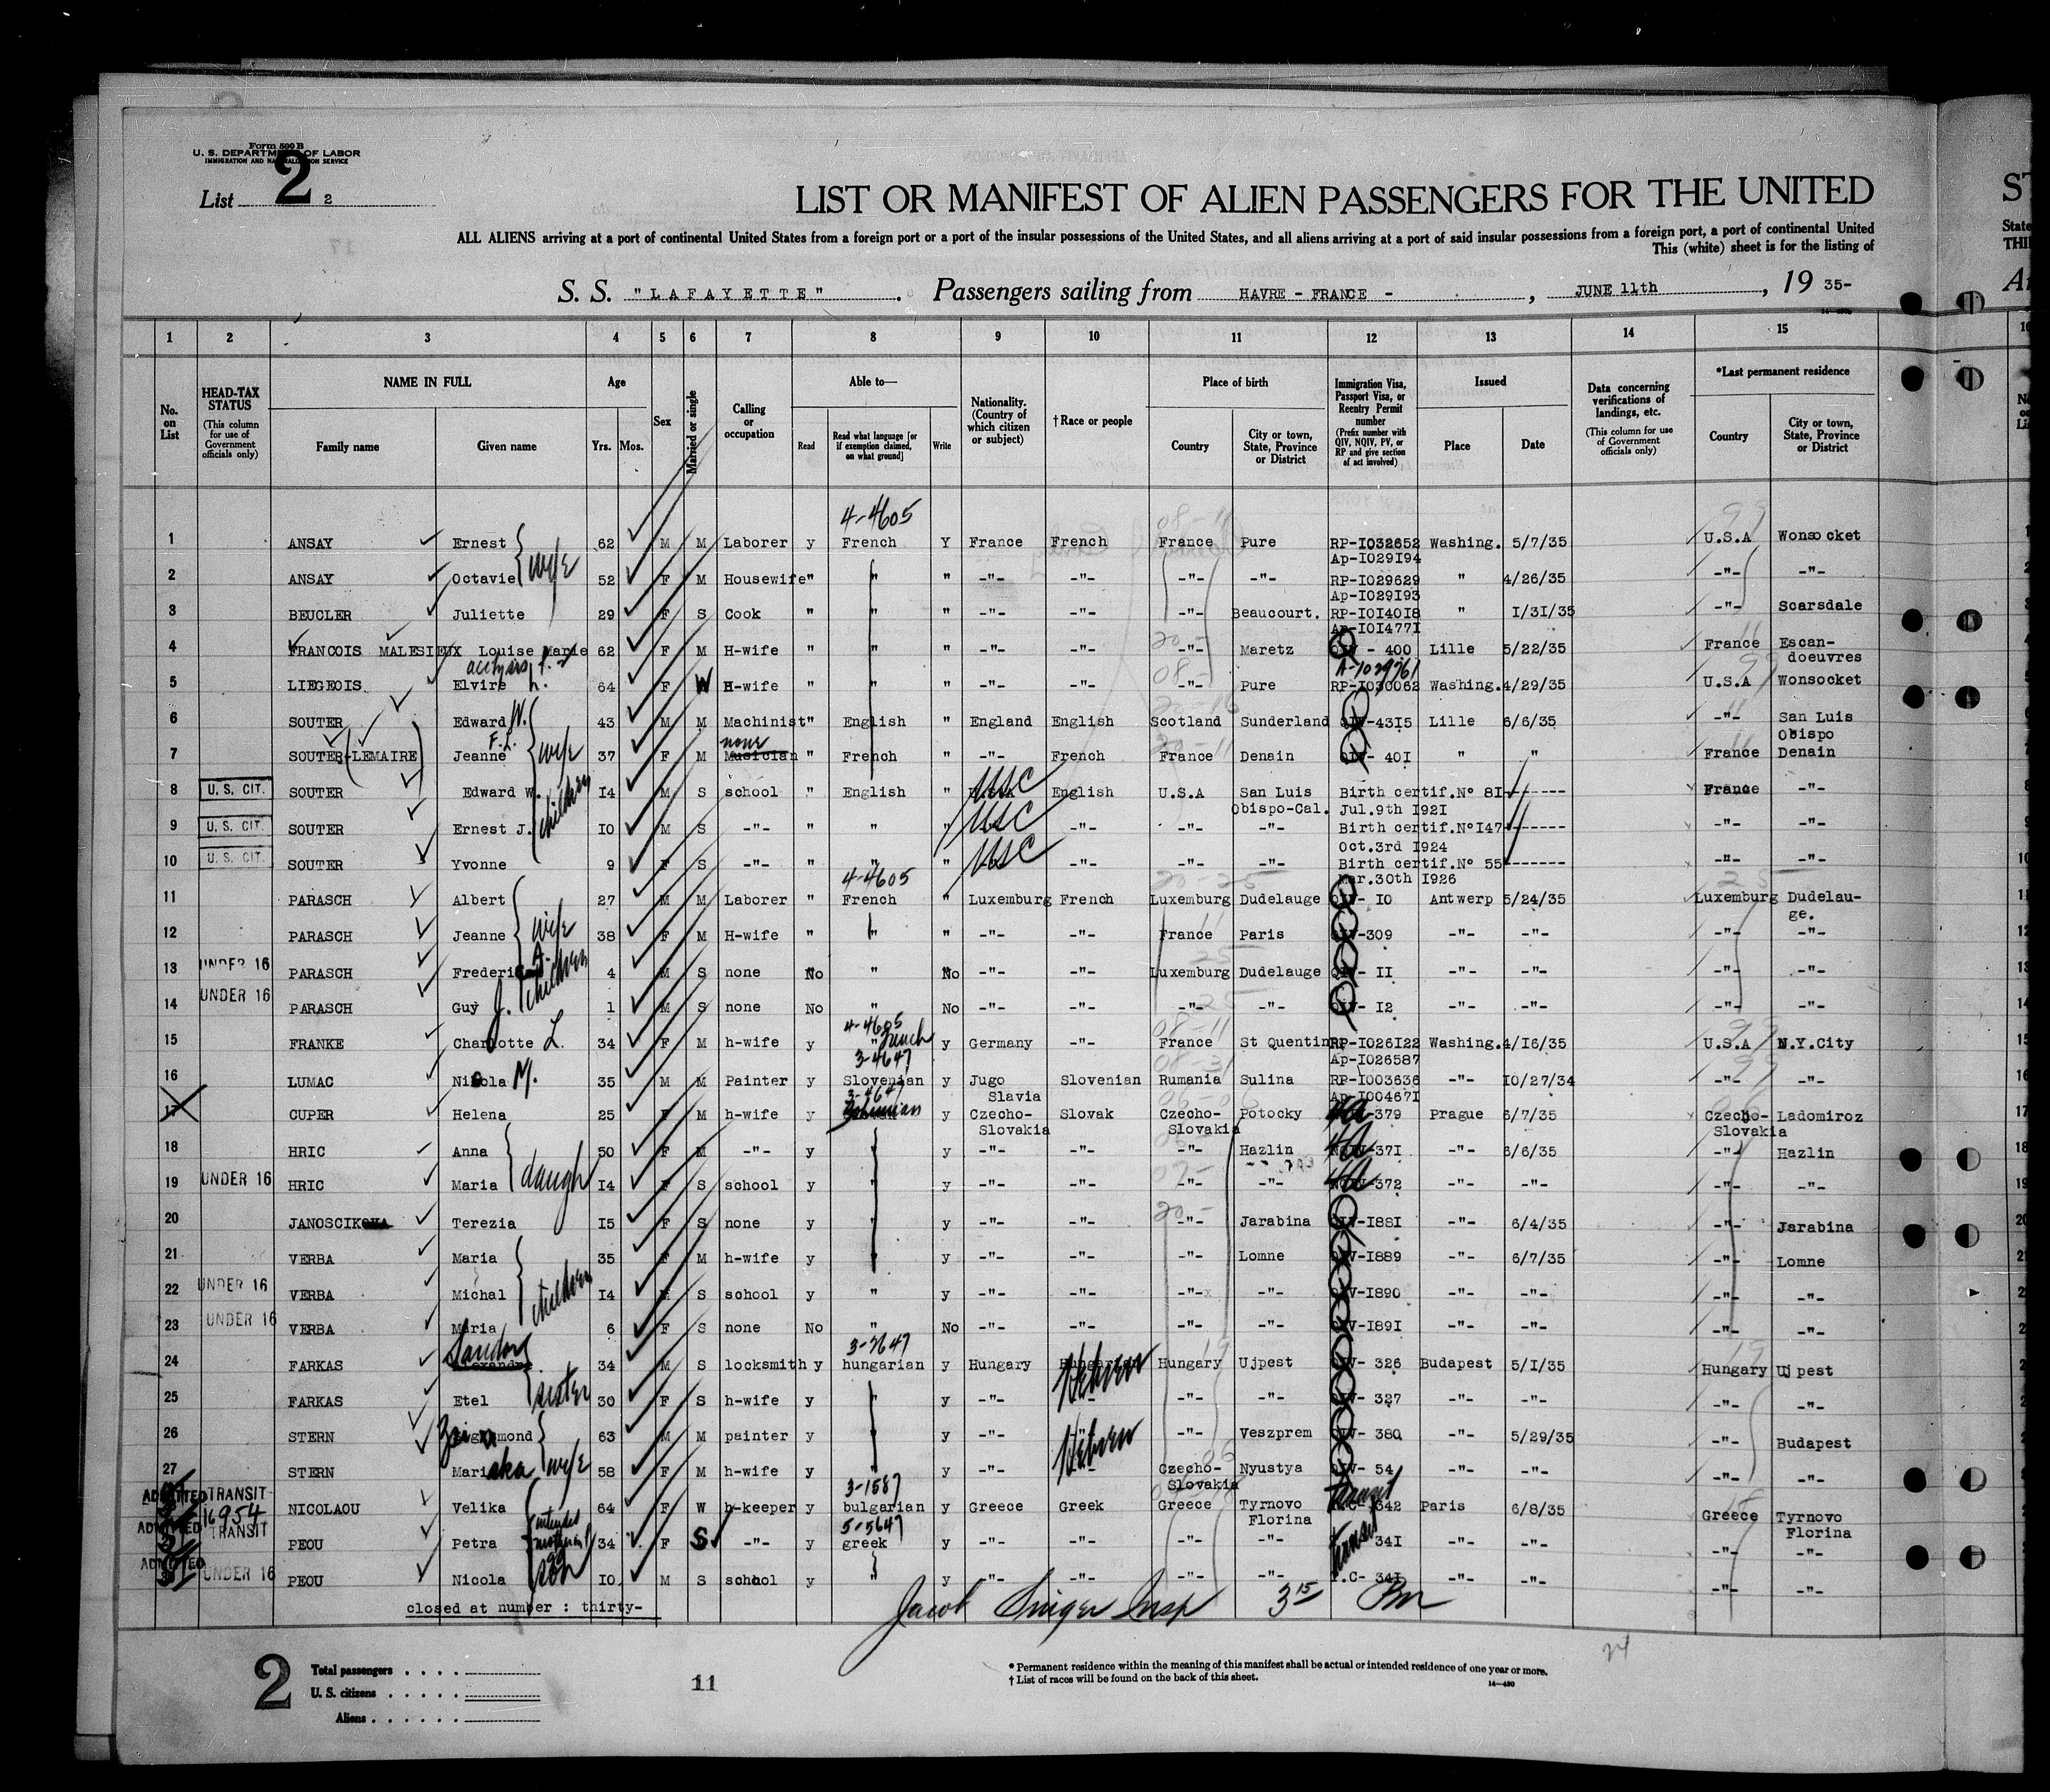 Form 500 B
U. S. DEPARTMENT OF LABOR
IMMIGRATION AND NATURALIZATION SERVICE
List 2 2
LIST OR MANIFEST OF ALIEN PASSENGERS FOR THE UNITED
ST
ALL ALIENS arriving at a port of continental United States from a foreign port or a port of the insular possessions of the United States, and all aliens arriving at a port of said insular possessions from a foreign port, a port of continental United
State
This (white) sheet is for the listing of
THI
S. S. "LAFAYETTE" . Passengers sailing from HAVRE - FRANCE - , JUNE 11th , 19 35-
1 2 3 4 5 6 7 8 9 10 11 12 13 14 15
No. on List
HEAD-TAX STATUS (This column for use of Government officials only)
NAME IN FULL Family name Given name
Age Yrs. Mos.
Sex
Married or single
Calling or occupation
Able to— Read Read what language [or if exemption claimed, on what ground] Write
Nationality. (Country of which citizen or subject)
† Race or people
Place of birth Country City or town, State, Province or District
Immigration Visa, Passport Visa, or Reentry Permit number (Prefix number with QIV, NQIV, PV, or RP and give section of act involved)
Issued Place Date
Data concerning verifications of landings, etc. (This column for use of Government officials only)
*Last permanent residence Country City or town, State, Province or District
4-4605
1 ANSAY Ernest 62 M M Laborer y French Y France French France Pure RP-I032652 Washing. 5/7/35 U.S.A Wonsocket
Ap-I029I94
2 ANSAY Octavie wife 52 F M Housewife " " " -"- -"- -"- -"- RP-I029629 " 4/26/35 -"- -"-
Ap-I029I93
3 BEUCLER Juliette 29 F S Cook " " " -"- -"- -"- Beaucourt. RP-I0I40I8 " I/3I/35 -"- Scarsdale
Ap-I0I477I
4 FRANCOIS MALESIEUX Louise Marie 62 F M H-wife " " " -"- -"- -"- Maretz QIV - 400 Lille 5/22/35 France Escan-
doeuvres
A-1029761
5 LIEGEOIS Elvire 64 F W H-wife " " " -"- -"- -"- Pure RP-I030062 Washing. 4/29/35 U.S.A Wonsocket
6 SOUTER Edward W. 43 M M Machinist " English " England English Scotland Sunderland QIV-43I5 Lille 6/6/35 -"- San Luis
Obispo
none
7 SOUTER (LEMAIRE) Jeanne wife 37 F M Musician " French " -"- French France Denain QIV- 40I " " France Denain
8 U. S. CIT. SOUTER Edward W. children I4 M S school " English " USC English U.S.A San Luis Birth certif.N° 8I ------ France -"-
Obispo-Cal. Jul.9th I92I
9 U. S. CIT. SOUTER Ernest J. I0 M S -"- " " " USC -"- -"- -"- Birth certif.N°I47 ------- -"- -"-
Oct.3rd I924
10 U. S. CIT. SOUTER Yvonne 9 F S -"- " " USC -"- -"- -"- Birth certif.N° 55 ------- -"- -"-
4-4605 Mar.30th I926
11 PARASCH Albert 27 M M Laborer " French " Luxemburg French Luxemburg Dudelauge QIV- I0 Antwerp 5/24/35 Luxemburg Dudelau-
ge.
12 PARASCH Jeanne wife 38 F M H-wife " " " -"- -"- France Paris QIV-309 -"- -"- -"- -"-
13 UNDER 16 PARASCH Frederic A. children 4 M S none No " No -"- -"- Luxemburg Dudelauge QIV- II -"- -"- -"- -"-
14 UNDER 16 PARASCH Guy J. 1 M S none No " No -"- -"- -"- -"- QIV- I2 -"- -"- -"- -"-
4-4605
15 FRANKE Charlotte L. 34 F M h-wife y " french y Germany -"- France St Quentin RP-I026I22 Washing. 4/I6/35 U.S.A N.Y.City
3-4647 Ap-I026587
16 LUMAC Nicola M. 35 M M Painter y Slovenian y Jugo Slovenian Rumania Sulina RP-I003636 -"- I0/27/34 -"- -"-
Slavia Ap-I00467I
17 CUPER Helena 25 F M h-wife y y Czecho- Slovak Czecho- Potocky 4a -379 Prague 6/7/35 Czecho- Ladomiroz
Slovakia Slovakia Slovakia
18 HRIC Anna 50 F M -"- y " y -"- -"- -"- Hazlin 4a -37I -"- 6/6/35 -"- Hazlin
19 UNDER 16 HRIC Maria daugh I4 F S school y " y -"- -"- -"- -"- 4a -372 -"- -"- -"- -"-
20 JANOSCIKOVA Terezia I5 F S none y " y -"- -"- -"- Jarabina QIV-I88I -"- 6/4/35 -"- Jarabina
21 VERBA Maria 35 F M h-wife y " y -"- -"- -"- Lomne QIV-I889 -"- 6/7/35 -"- Lomne
22 UNDER 16 VERBA Michal children I4 M S school y " y -"- -"- -"- -"- QIV-I890 -"- -"- -"- -"-
23 UNDER 16 VERBA Maria 6 F S none No " No -"- -"- -"- -"- QIV-I89I -"- -"- -"- -"-
Sandor 3-2647
24 FARKAS 34 M S locksmith y hungarian y Hungary Hebrew Hungary Ujpest QIV- 326 Budapest 5/1/35 Hungary Ujpest
25 FARKAS Etel sister 30 F S h-wife y " y -"- -"- -"- QIV- 327 -"- -"- -"- -"-
26 STERN Zsigmond 63 M M painter y " y -"- Hebrew -"- Veszprem QIV- 380 -"- 5/29/35 -"- Budapest
27 STERN Mariska wife 58 F M h-wife y " y -"- -"- Czecho- Nyustya QIV- 54 -"- -"- -"- -"-
3-1587 Slovakia
ADMITTED TRANSIT 16954 NICOLAOU Velika 64 F W h-keeper y bulgarian y Greece Greek Greece Tyrnovo transit 342 Paris 6/8/35 Greece Tyrnovo
5-5647 Florina Florina
ADMITTED TRANSIT PEOU Petra 34 F S -"- y greek y -"- -"- -"- -"- transit 34I -"- -"- -"- -"-
ADMITTED UNDER 16 PEOU Nicola son I0 M S school y " y -"- -"- -"- -"- T.C- 34I -"- -"- -"- -"-
closed at number : thirty-
Jacob Singer Insp 3 15 Pm
24
2
Total passengers . . . .
U. S. citizens . . . . .
Aliens . . . . . .
11
* Permanent residence within the meaning of this manifest shall be actual or intended residence of one year or more.
† List of races will be found on the back of this sheet.
14—430